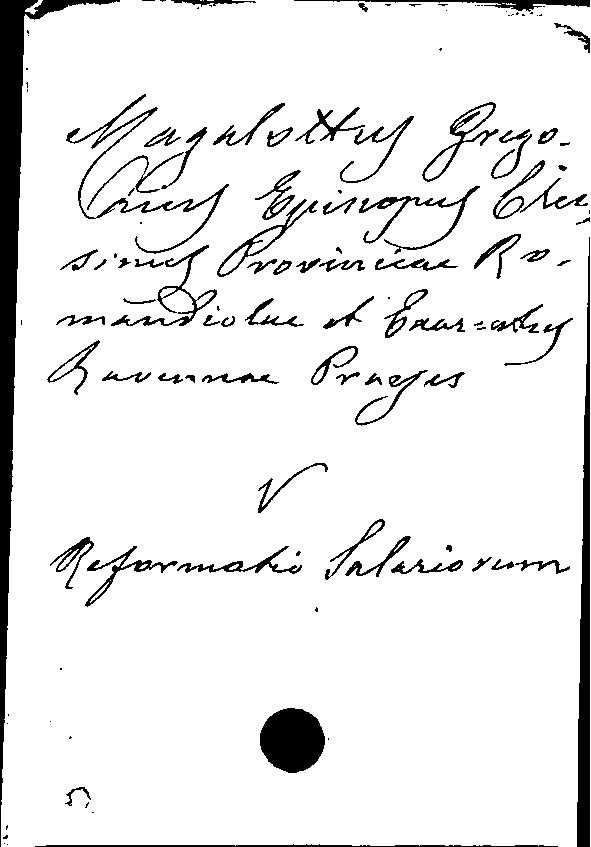 Magalottus Grego-
rius Episcopus Clu
sinus Provinciae Ro-
mandiolae et Exar-atus
Ravennae Praeses
V
Reformatio Salariorum